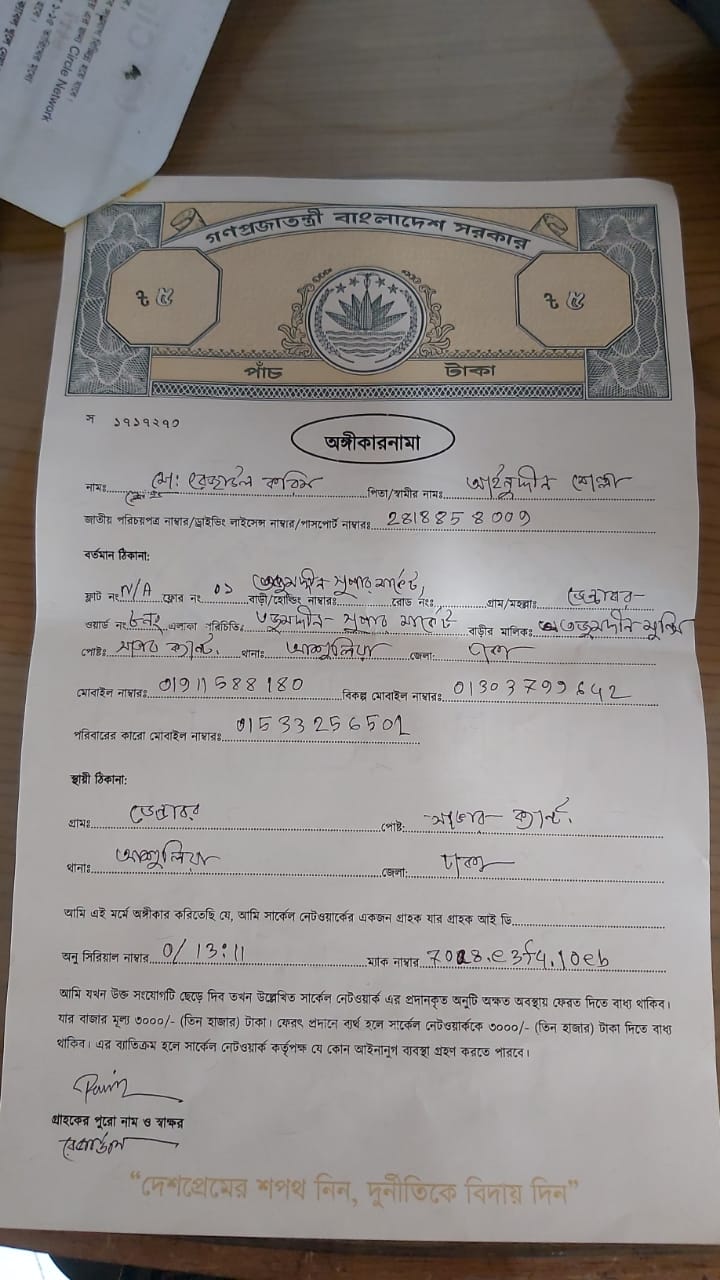 Circle Network
গণপ্রজাতন্ত্রী বাংলাদেশ সরকার
৳ ৫ ৳ ৫
পাঁচ টাকা
স ১৭১৭২৭০
অঙ্গীকারনামা
নামঃ মো: রেজাউল করিম পিতা/স্বামীর নামঃ আইনুদ্দীন
জাতীয় পরিচয়পত্র নাম্বার/ড্রাইভিং লাইসেন্স নাম্বার/পাসপোর্ট নাম্বারঃ 2818858009
বর্তমান ঠিকানা:
ফ্লাট নং N/A ফ্লোর নং ০১ বাড়ী/হোল্ডিং নাম্বারঃ সুপার মার্কেট, রোড নংঃ গ্রাম/মহল্লাঃ
ওয়ার্ড নং এলাকা পরিচিতিঃ সুপার মার্কেট বাড়ীর মালিকঃ
পোষ্টঃ সাভার ক্যান্ট. থানাঃ আশুলিয়া জেলা: ঢাকা
মোবাইল নাম্বারঃ 01911588180 বিকল্প মোবাইল নাম্বারঃ 01303799642
পরিবারের কারো মোবাইল নাম্বারঃ 01533256501
স্থায়ী ঠিকানা:
গ্রামঃ পোষ্ট: সাভার ক্যান্ট.
থানাঃ আশুলিয়া জেলা: ঢাকা
আমি এই মর্মে অঙ্গীকার করিতেছি যে, আমি সার্কেল নেটওয়ার্কের একজন গ্রাহক যার গ্রাহক আই ডি
অনু সিরিয়াল নাম্বার 0/13:11 ম্যাক নাম্বার 7028.e3f4.10eb
আমি যখন উক্ত সংযোগটি ছেড়ে দিব তখন উল্লেখিত সার্কেল নেটওয়ার্ক এর প্রদানকৃত অনুটি অক্ষত অবস্থায় ফেরত দিতে বাধ্য থাকিব।
যার বাজার মূল্য ৩০০০/- (তিন হাজার) টাকা। ফেরৎ প্রদানে ব্যর্থ হলে সার্কেল নেটওয়ার্ককে ৩০০০/- (তিন হাজার) টাকা দিতে বাধ্য
থাকিব। এর ব্যতিক্রম হলে সার্কেল নেটওয়ার্ক কর্তৃপক্ষ যে কোন আইনানুগ ব্যবস্থা গ্রহণ করতে পারবে।
গ্রাহকের পুরো নাম ও স্বাক্ষর
রেজাউল
“দেশপ্রেমের শপথ নিন, দুর্নীতিকে বিদায় দিন”